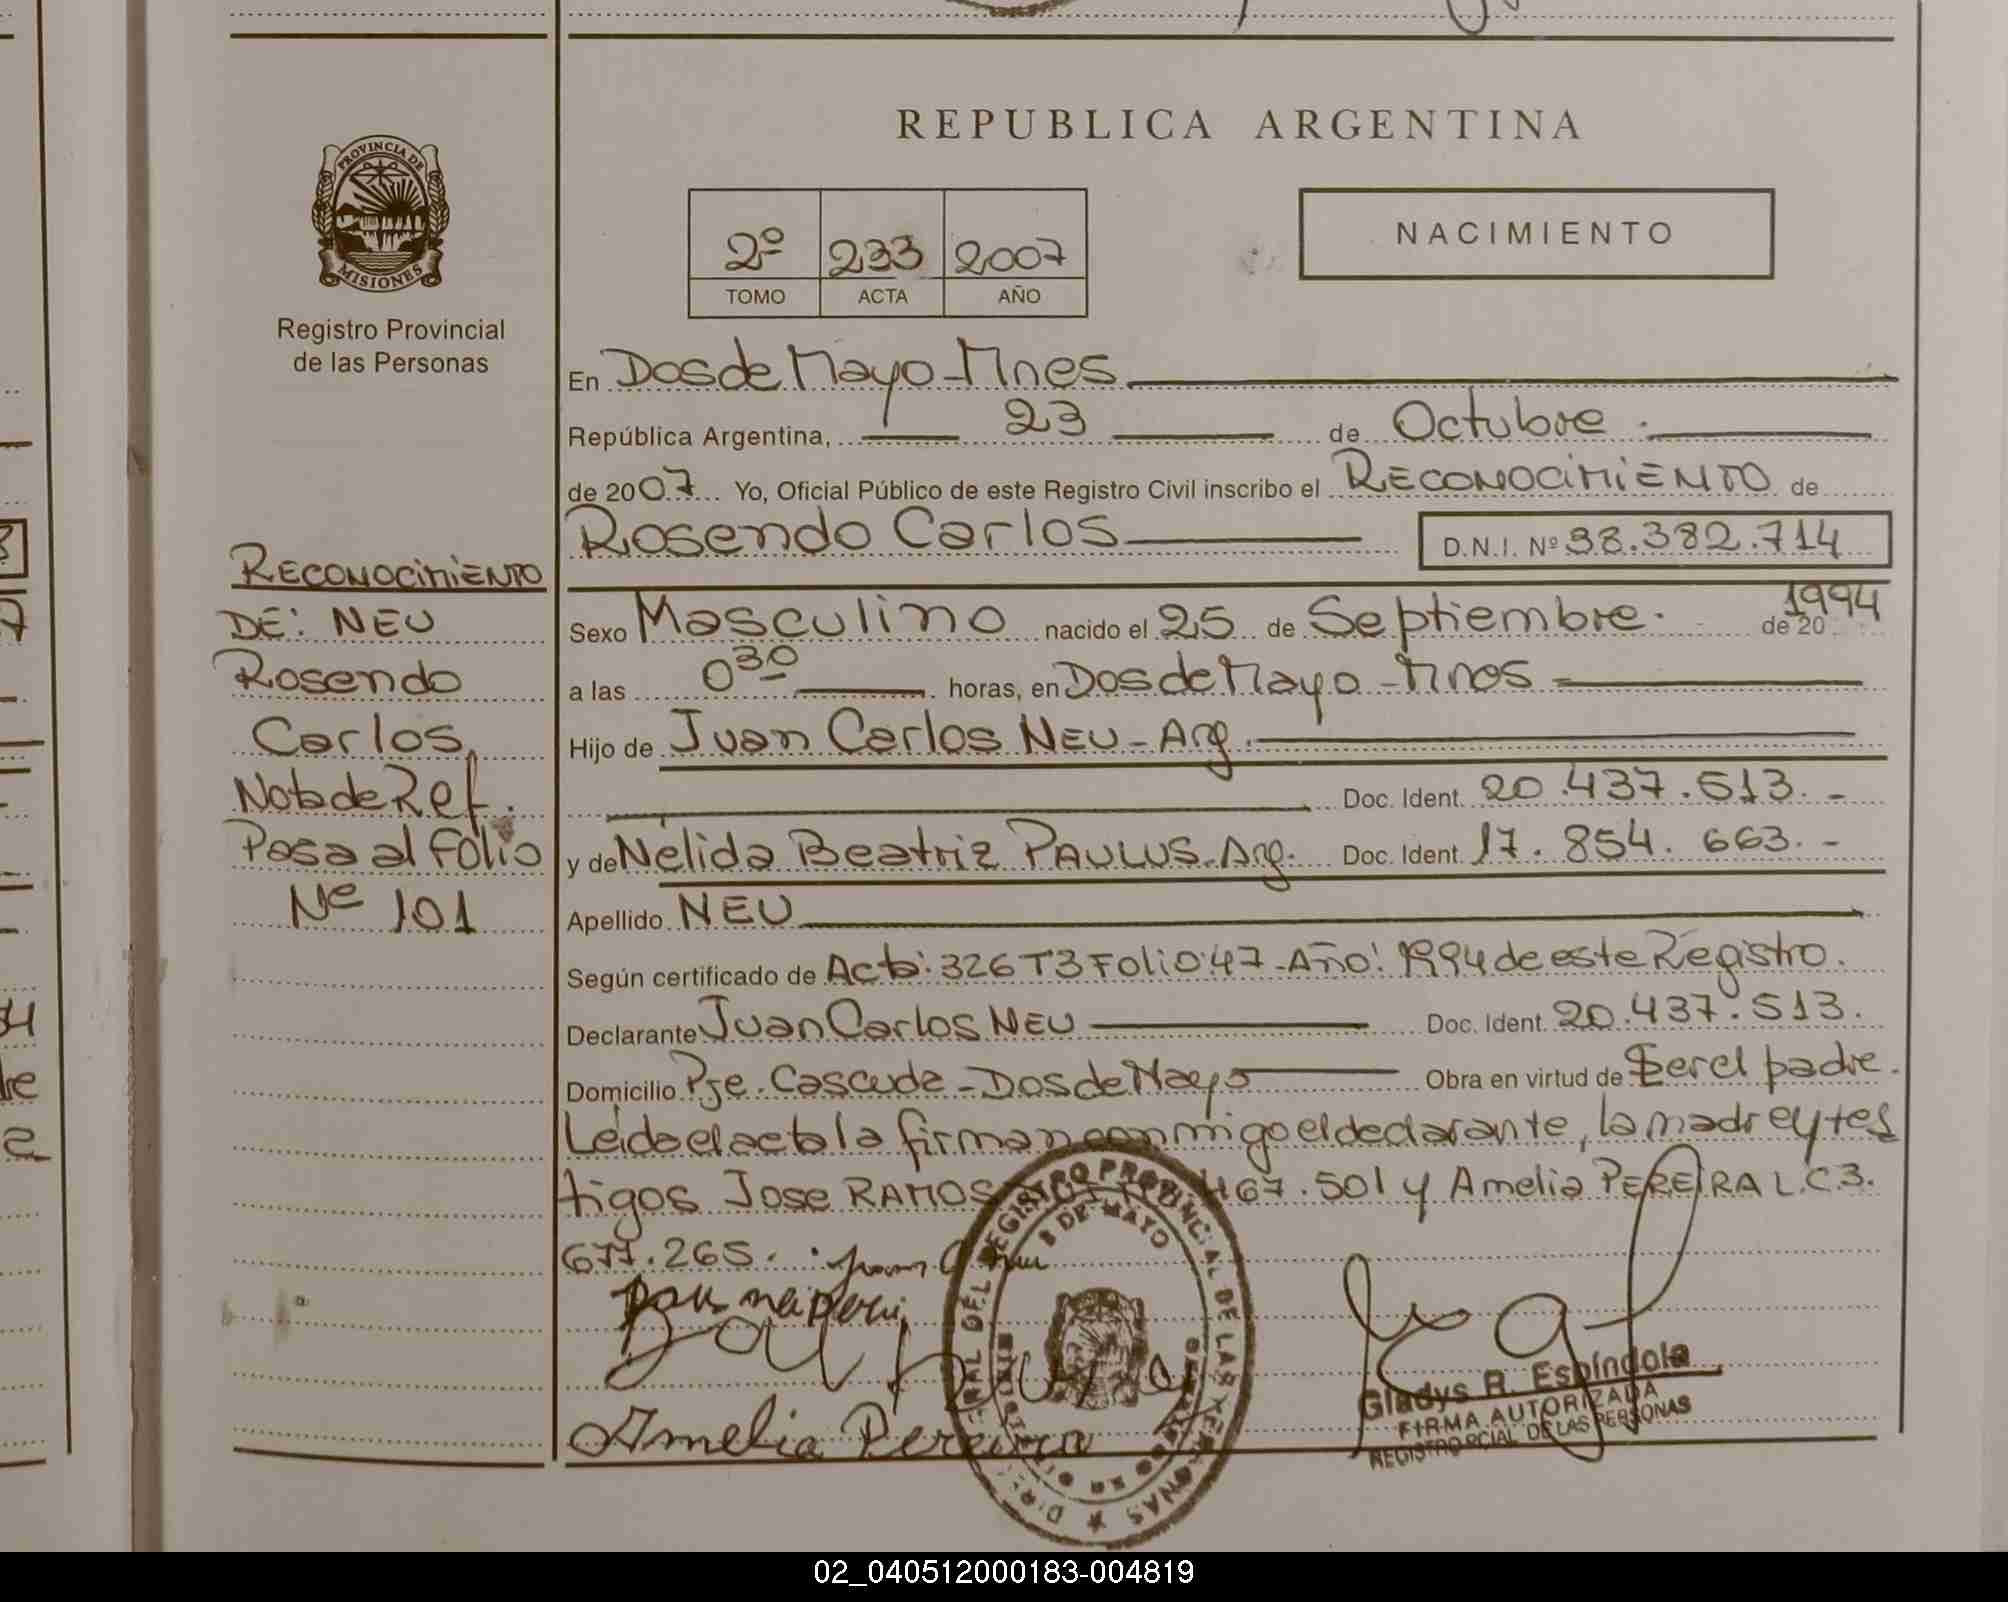 PROVINCIA DE
MISIONES
Registro Provincial
de las Personas
RECONOCIMIENTO
DE: NEU
Rosendo
Carlos
Nota de Ref.
Pasa al folio
Nº 101
REPUBLICA ARGENTINA
2º 233 2007
TOMO ACTA AÑO
NACIMIENTO
En Dos de Mayo - Mnes
República Argentina, 23 de Octubre
de 2007 Yo, Oficial Público de este Registro Civil inscribo el RECONOCIMIENTO de
Rosendo Carlos D.N.I. Nº 38.382.714
Sexo Masculino nacido el 25 de Septiembre de 20 1994
a las 0 30 horas, en Dos de Mayo - Mnes
Hijo de Juan Carlos NEU - Arg.
Doc. Ident. 20.437.513.-
y de Nélida Beatriz PAULUS - Arg. Doc. Ident. 17.854.663.-
Apellido NEU
Según certificado de Acta: 326 T3 Folio: 47 - Año: 1994 de este Registro.
Declarante Juan Carlos NEU Doc. Ident. 20.437.513.
Domicilio Pje. Cascuda - Dos de Mayo Obra en virtud de Ser el padre.
Leída el acta la firman conmigo el declarante, la madre y tes
tigos Jose RAMOS 467.501 y Amelia PEREIRA L.C.3.
677.265.
Amelia Pereira
REGISTRO PROVINCIAL DE LAS PERSONAS
2 DE MAYO
Gladys R. Espíndola
FIRMA AUTORIZADA
REGISTRO PCIAL DE LAS PERSONAS
02_040512000183-004819